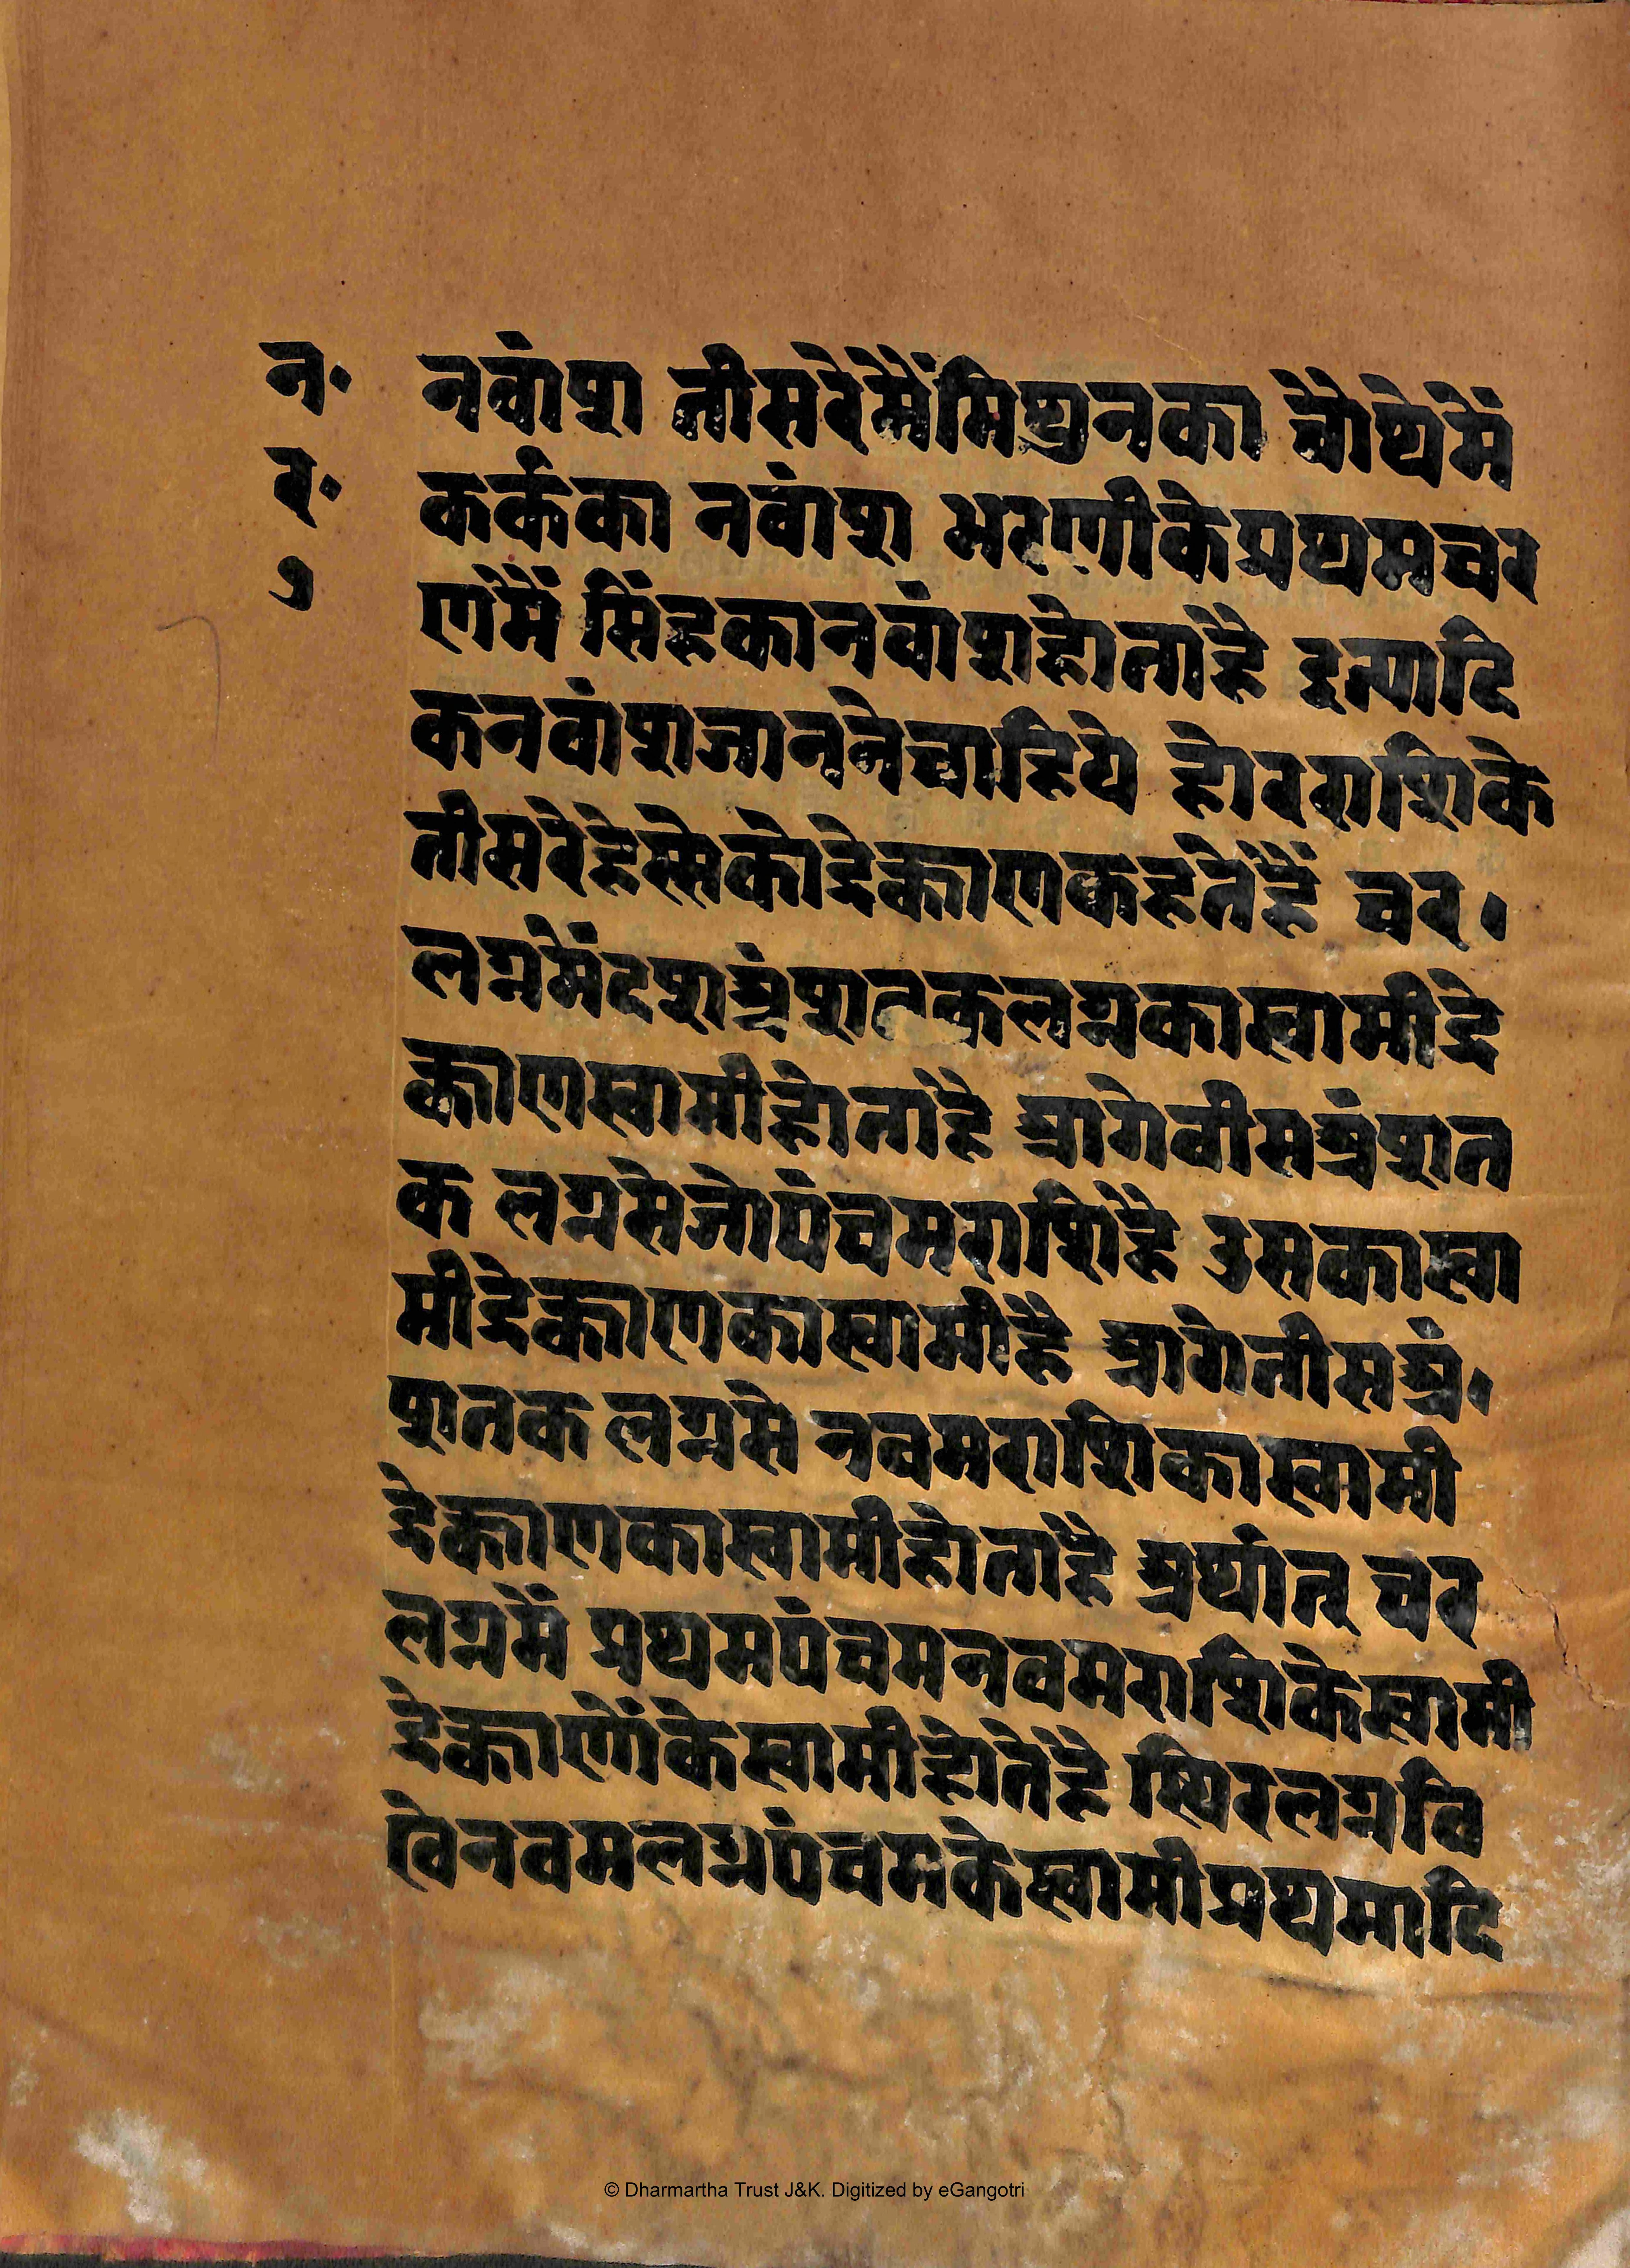 न॰
र॰
१
नवांश तीसरेमैंमिथुनका चौथेमें
कर्कका नवांश भरणीकेप्रथमचर
णमैं सिंहकानवांशहोताहै इत्यादि
कनवांशजाननेचाहिये होरराशिके
तीसरेहेस्सेकोद्रेक्काणकहतेहैं चर।
लग्नमेंदशअंशतकलग्नकास्वामीद्रे
क्काणस्वामीहोताहै आगेवीसअंशत
क लग्नसेजोपंचमराशिहै उसकास्वा
मीद्रेक्काणकास्वामीहै आगेतीसअं।
शतक लग्नसे नवमराशिकास्वामी
द्रेक्काणकास्वामीहोताहै अर्थात् चर
लग्नमें प्रथमपंचमनवमराशिकेस्वामी
द्रेक्काणोंकेस्वामीहोतेहै स्थिरलग्नवि
षेनवमलग्नपंचमकेस्वामीप्रथमादि
© Dharmartha Trust J&K. Digitized by eGangotri